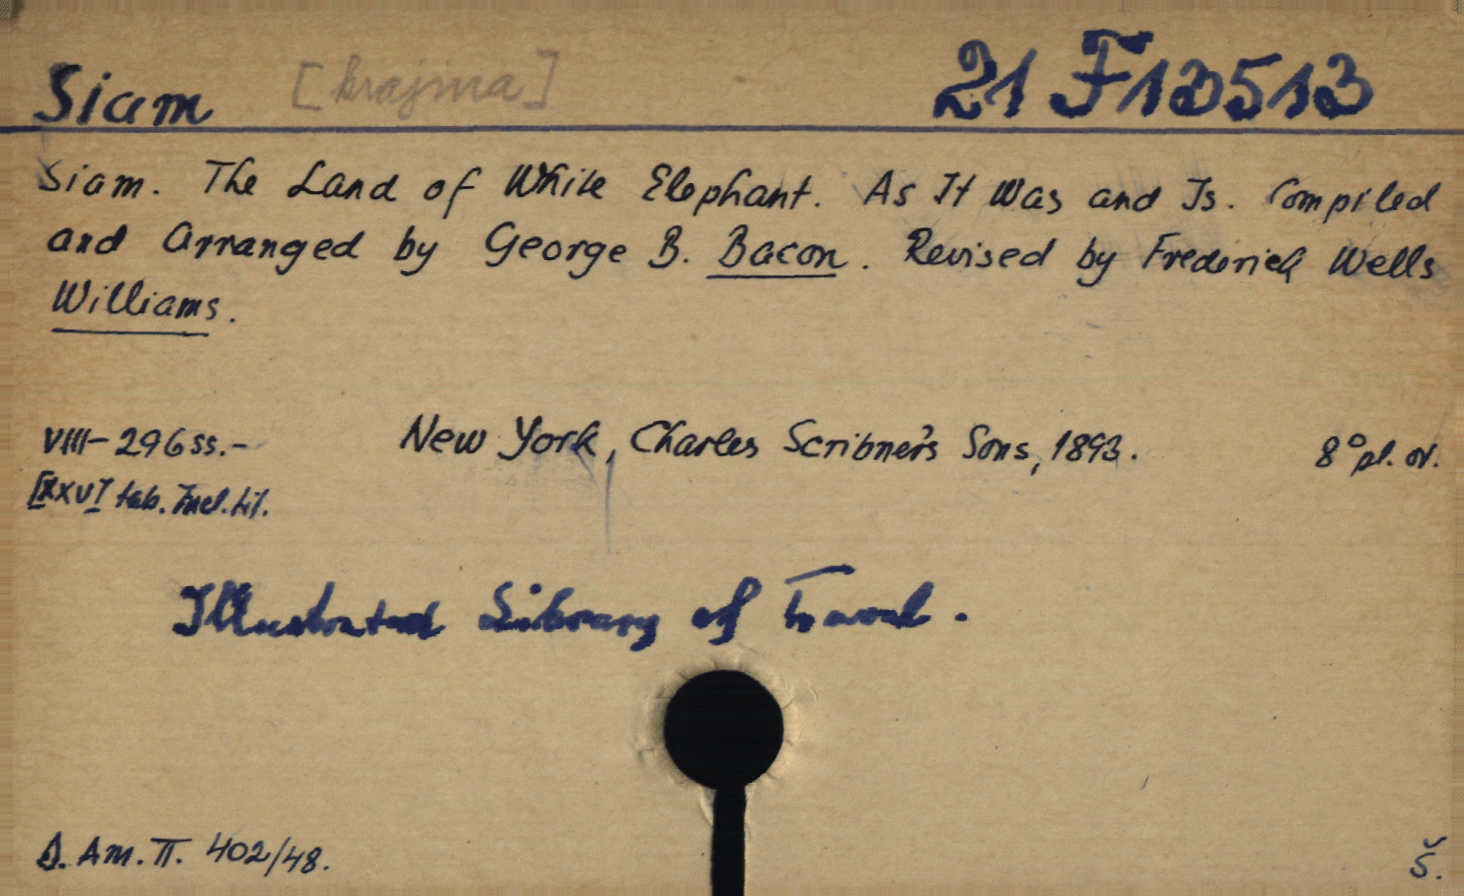 Siam [krajina] 21 F 13513
Siam. The Land of White Elephant. As It Was and Is. Compiled
and Arranged by George B. Bacon. Revised by Frederick Wells
Williams.
VIII-296 ss.- New York, Charles Scribner's Sons, 1893. 8° pl. or.
[XXV] tab. Incl. tit.
Illustrated Library of Travel.
D. Am. II. 402/48. Š.